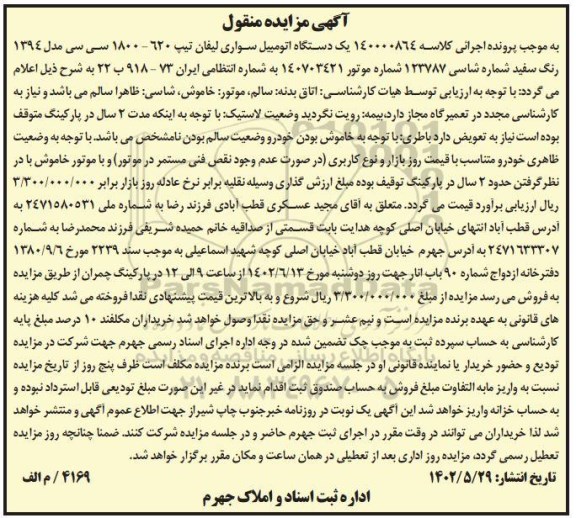 آگهی مزایده منقول
به موجب پرونده اجرائی کلاسه ۱۴۰۰۰۰۸۶۴ یک دستگاه اتومبیل سواری لیفان تیپ ۶۲۰ - ۱۸۰۰ سی سی مدل ۱۳۹۴
رنگ سفید شماره شاسی ۱۲۳۷۸۷ شماره موتور ۱۴۰۷۰۳۴۲۱ به شماره انتظامی ایران ۷۳ - ۹۱۸ ب ۲۲ به شرح ذیل اعلام
می گردد: با توجه به ارزیابی توسط هیات کارشناسی: اتاق بدنه: سالم، موتور: خاموش، شاسی: ظاهرا سالم می باشد و نیاز به
کارشناسی مجدد در تعمیرگاه مجاز دارد،بیمه: رویت نگردید وضعیت لاستیک: با توجه به اینکه مدت ۲ سال در پارکینگ متوقف
بوده است نیاز به تعویض دارد باطری با توجه به خاموش بودن خودرو وضعیت سالم بودن نامشخص می باشد. با توجه به وضعیت
ظاهری خودرو متناسب با قیمت روز بازار و نوع کاربری (در صورت عدم وجود نقص فنی مستمر در موتور) و با موتور خاموش با در
نظر گرفتن حدود ۲ سال در پارکینگ توقیف بوده مبلغ ارزش گذاری وسیله نقلیه برابر نرخ عادله روز بازار برابر ۳/۳۰۰/۰۰۰/۰۰۰
ریال ارزیابی برآورد قیمت می گردد. متعلق به آقای مجید عسکری قطب آبادی فرزند رضا به شماره ملی ۲۴۷۱۵۸۰۵۳۱ به
آدرس قطب آباد انتهای خیابان اصلی کوچه هدایت بابت قسمتی از صداقیه خانم حمیده شریفی فرزند محمدرضا به شماره
۲۴۷۱۶۳۳۳۰۷ به آدرس جهرم خیابان قطب آباد خیابان اصلی کوچه شهید اسماعیلی به موجب سند ۲۲۳۹ مورخ ۱۳۸۰/۹/۶
دفترخانه ازدواج شماره ۹۰ باب انار جهت روز دوشنبه مورخ ۱۴۰۲/۶/۱۳ از ساعت ۹ الی ۱۲ در پارکینگ چمران از طریق مزایده
به فروش می رسد مزایده از مبلغ ۳/۳۰۰/۰۰۰/۰۰۰ ریال شروع و به بالاترین قیمت پیشنهادی نقدا فروخته می شد کلیه هزینه
های قانونی به عهده برنده مزایده است و نیم عشر و حق مزایده نقدا وصول خواهد شد خریداران مکلفند ۱۰ درصد مبلغ پایه
کارشناسی به حساب سپرده ثبت به موجب چک تضمین شده در وجه اداره اجرای اسناد رسمی جهرم جهت شرکت در مزایده
تودیع و حضور خریدار یا نماینده قانونی او در جلسه مزایده الزامی است برنده مزایده مکلف است ظرف پنج روز از تاریخ مزایده
نسبت به واریز مابه التفاوت مبلغ فروش به حساب صندوق ثبت اقدام نماید در غیر این صورت مبلغ تودیعی قابل استرداد نبوده و
به حساب خزانه واریز خواهد شد این آگهی یک نوبت در روزنامه خبرجنوب چاپ شیراز جهت اطلاع عموم آگهی و منتشر خواهد
شد لذا خریداران می توانند در وقت مقرر در اجرای ثبت جهرم حاضر و در جلسه مزایده شرکت کنند. ضمنا چنانچه روز مزایده
تعطیل رسمی گردد، مزایده روز اداری بعد از تعطیلی در همان ساعت و مکان مقرر برگزار خواهد شد.
تاریخ انتشار: ۱۴۰۲/۵/۲۹ ۴۱۶۹ / م الف
اداره ثبت اسناد و املاک جهرم